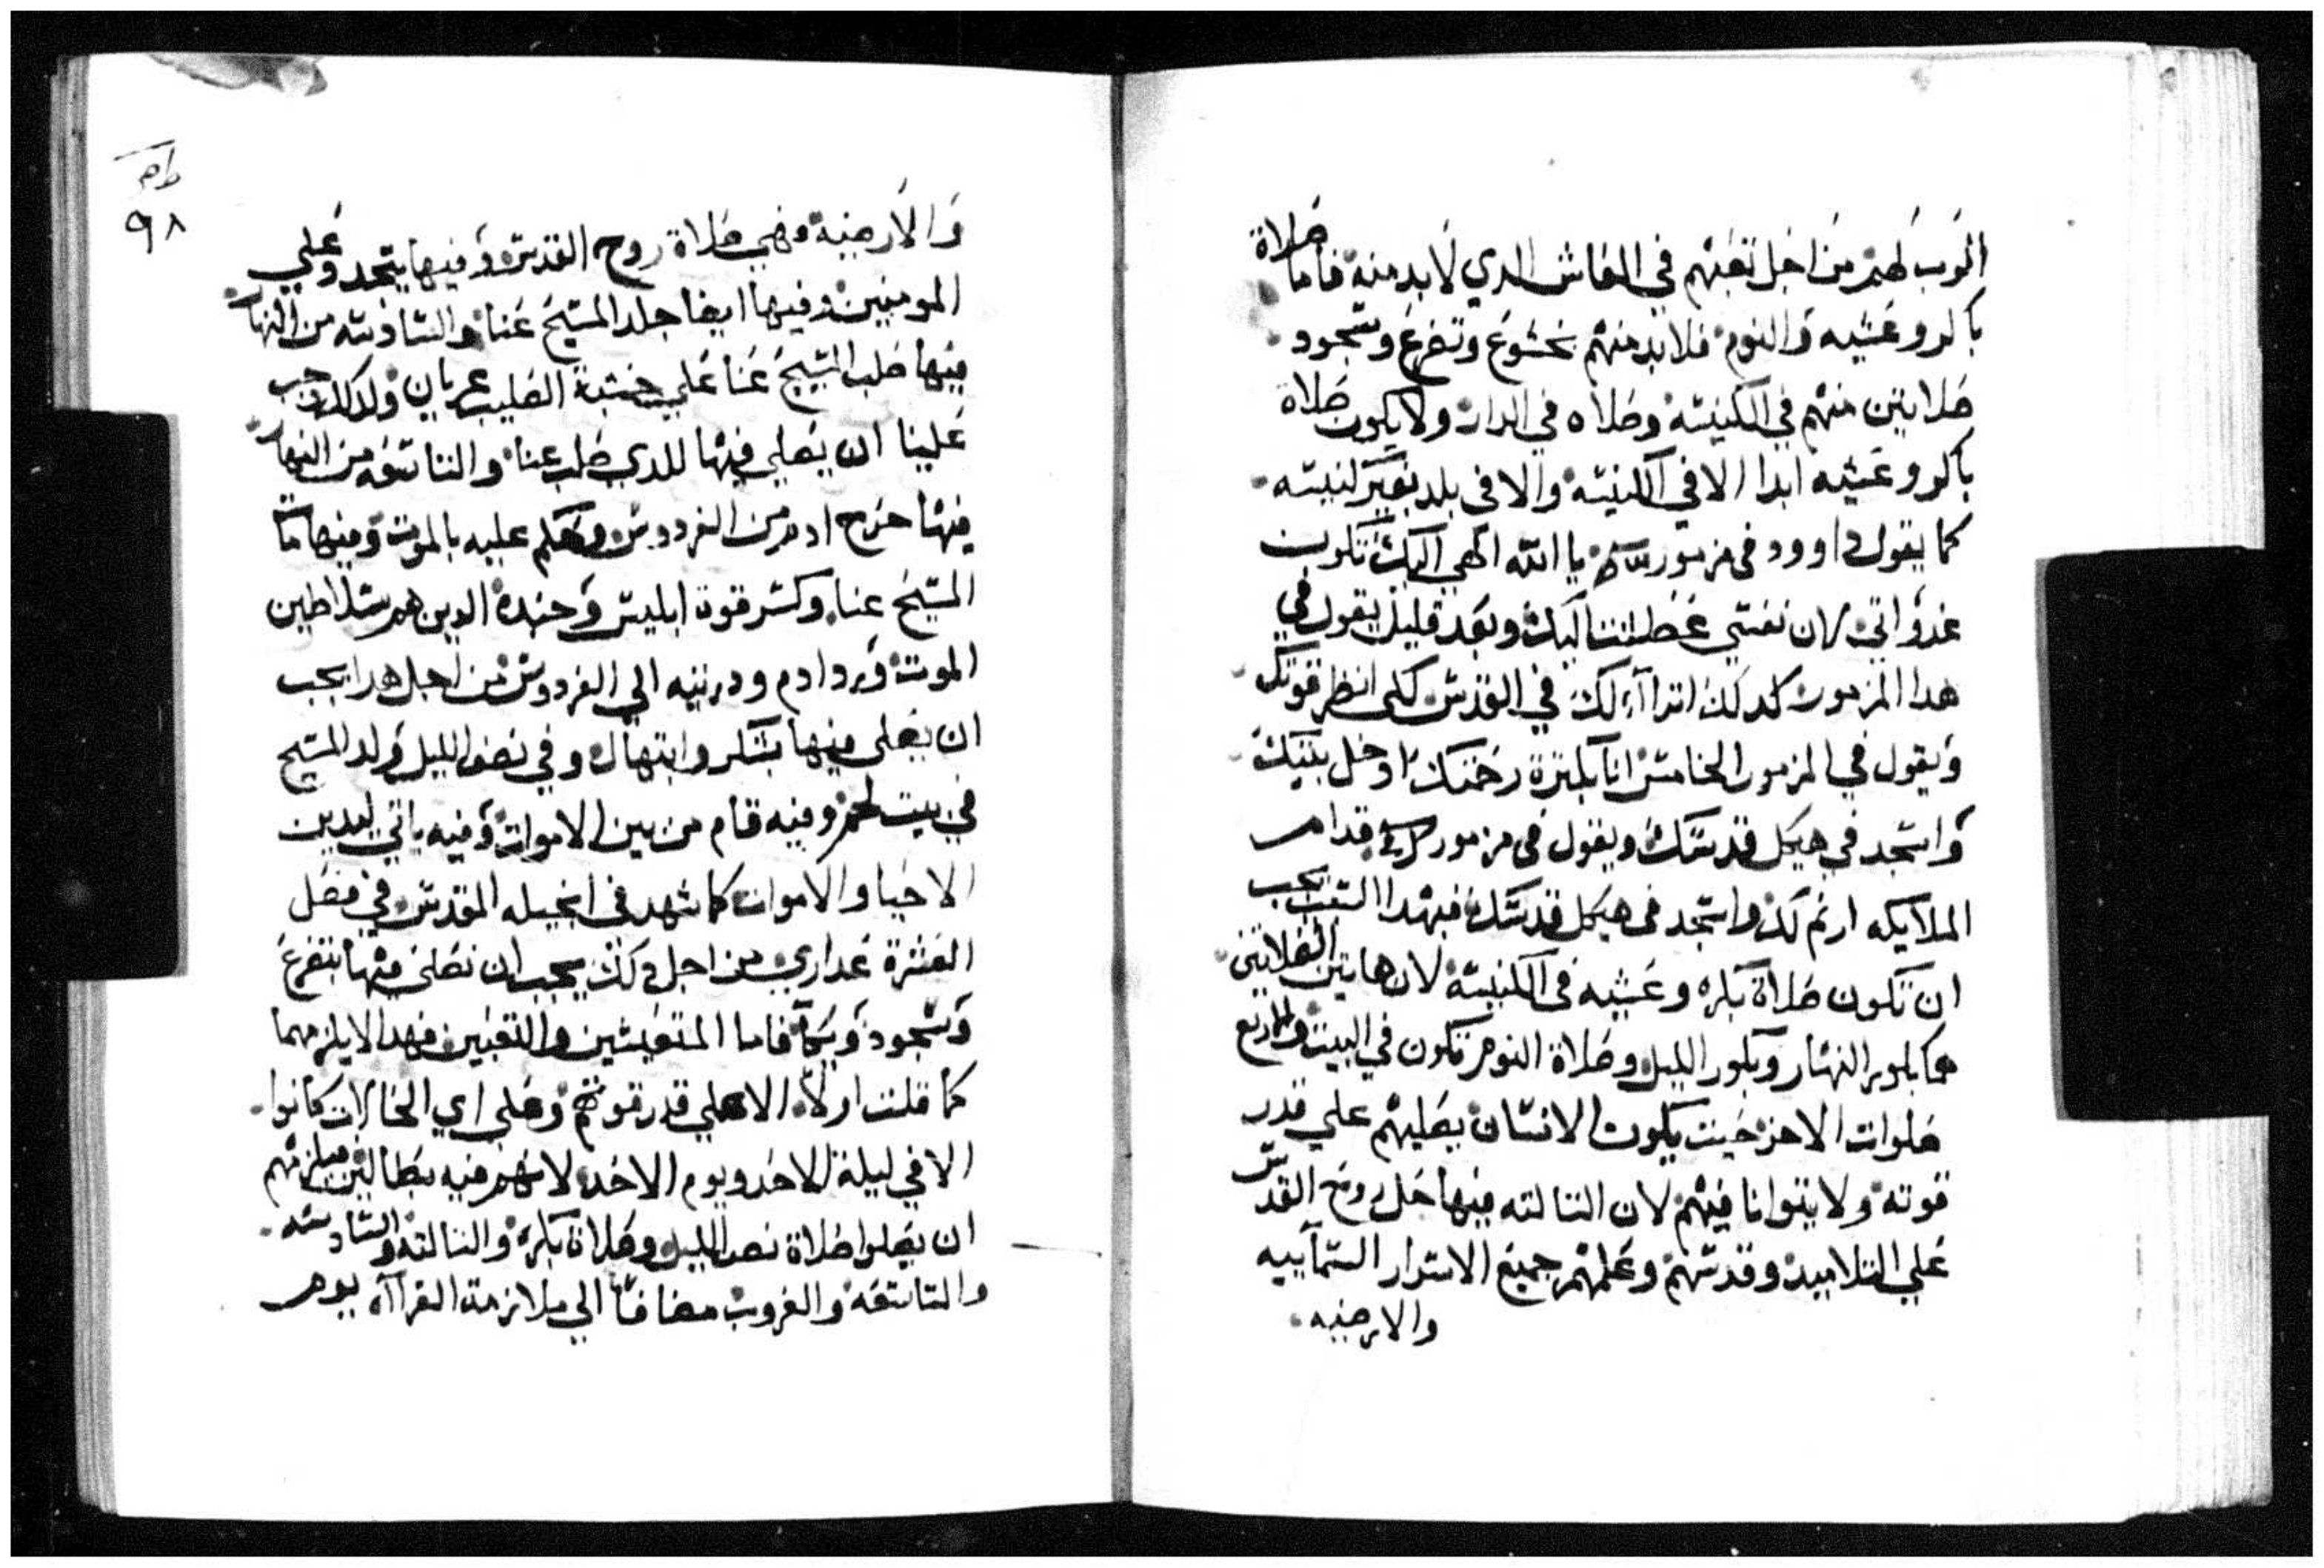 الرب لهم من اجل تعبهم في المعاش الدي لابد منه فاما صلاة
باكر وعشيه والنوم فلابد منهم بخشوع وتضرع وسجود
صلاتين منهم في الكنيسه وصلاه في الدار ولا يكون صلاة
باكر وعشيه ابدا الا في الكنيسه والا في بلد بغير كنيسه
كما يقول داوود في مزمور يا الله الهي اليك تكون
غدواتي لان نفسي عطشت اليك وبعد قليل يقول في
هدا المزمور كدلك اتراآء لك في القدس لكي انظر قوتك
ويقول في المزمور الخامس انا بكترة رحمتك ادخل بيتك
واسجد في هيكل قدسك ويقول في مزمور قدام
الملايكه ارتم لك واسجد في هيكل قدسك فبهدا السبب يجب
ان تكون صلاة بكره وعشيه في الكنيسة لان هاتين الصلاتين
هما بكور النهار وبكور الليل وصلاة النوم تكون في البيت والاربع
صلوات الاخر حيت يكون الانسان يصليهم علي قدر
قوته ولا يتوانا فيهم لان التالته فيها حل روح القدس
علي التلاميد وقدسهم وعلمهم جميع الاسرار السمآييه
والارضيه
٩٨
والارضية فهي صلاة روح القدس وفيها يتجدد وعلي
المومنين وفيها ايضا جلد المسيح عنا والسادسه من النهار
فيها صلب المسيح عنا علي خشبة الصليب عريان ولدلك وجب
علينا ان يصلي فيها للدي صلب عنا والتاسعه من النهار
فيها خرج ادم من الفردوس وحكم عليه بالموت وفيها مات
المسيح عنا وكسر قوة ابليس وجنده الدين هم سلاطين
الموت ورد ادم ودريته الي الفردوس من اجل هدا يجب
ان يصلي فيها بشكر وابتهال وفي نصف الليل ولد المسيح
في بيت لحم وفيه قام من بين الاموات وفيه ياتي ليدين
الاحيا والاموات كما شهد في انجيله المقدس في فصل
العشرة عداري من اجل دلك يجب ان نصلي فيها بتضرع
وسجود وبكآ فاما المتعيشين والتعبين فهدا لا يلزمهما
كما قلت اولاً الا علي قدر قوتهم وعلي اي الحالات كانوا
الا في ليلة الاحد ويوم الاحد لانهم فيه بطالين فيلزمهم
ان يصلوا صلاة نصف الليل وصلاة بكره والتالته والسادسه
والتاسعه والغروب مضافاً الي ملازمة القراآه يوم